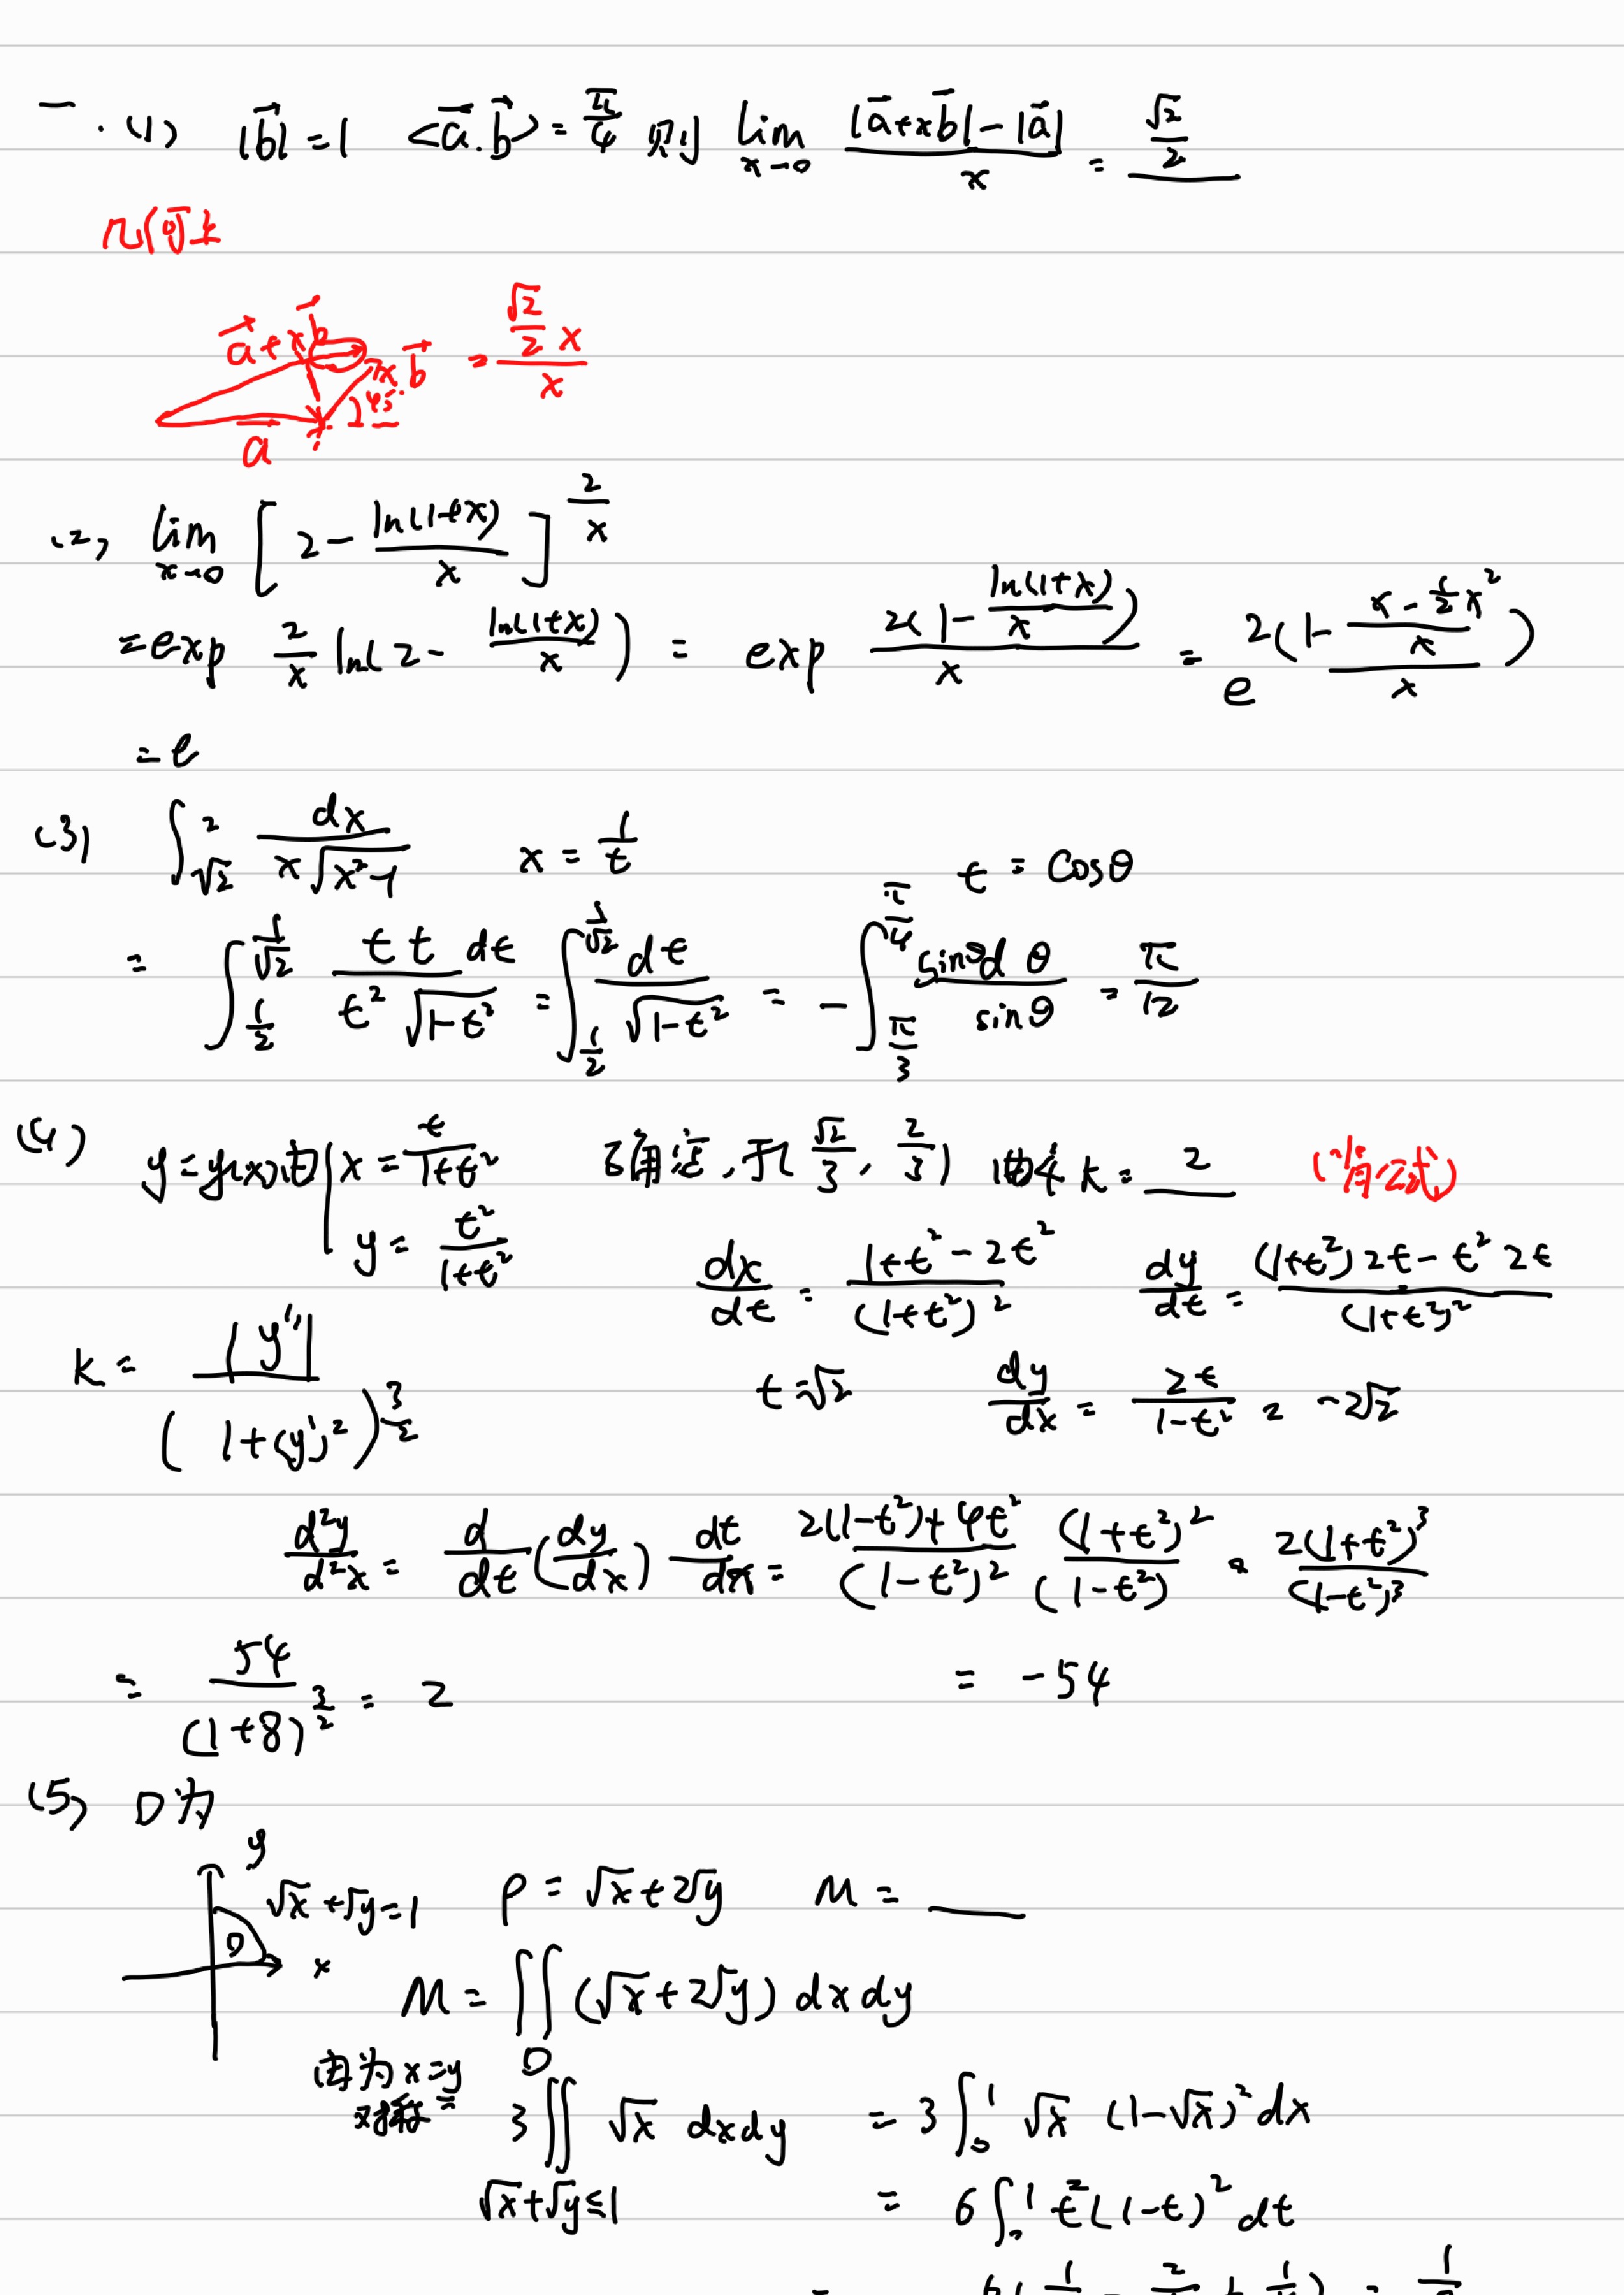 一. (1) |b⃗|=1 <a⃗.b⃗>=π/4 则 lim_{x→0} (|a⃗+xb⃗|-|a⃗|)/x = √2/2
几何上
a⃗+xb⃗ xb⃗ = (√2/2 x)/x
45°
a⃗
(2) lim_{x→0} [2-ln(1+x)/x]^{2/x}
=exp 2/x ln(2-ln(1+x)/x) = exp 2(1-ln(1+x)/x)/x = e^{2(1-(x-1/2x²)/x)/x}
=e
(3) ∫_{√2}^{2} dx/(x√(x²-1)) x=1/t t=cosθ
= ∫_{1/2}^{1/√2} t t dt/(t²√(1-t²)) = ∫_{1/2}^{1/√2} dt/√(1-t²) = -∫_{π/3}^{π/4} sinθdθ/sinθ = π/12
(4) y=y(x)由 x=t/(1+t²) 确定,于(√2/3, 2/3) 曲率 k=2 (背公式)
y=t²/(1+t²) dx/dt=(1+t²-2t²)/(1+t²)² dy/dt=((1+t²)2t-t²2t)/(1+t²)²
k=|y''|/(1+(y')²)^{3/2} t=√2 dy/dx=2t/(1-t²)=-2√2
d²y/d²x = d/dt(dy/dx) dt/dx = (2(1-t²)+4t²)/(1-t²)² (1+t²)²/(1-t²) = 2(1+t²)³/(1-t²)³
= 54/(1+8)^{3/2} = 2 = -54
(5) D为
y
√x+√y=1 ρ=√x+2√y M=
D
x
M=∬_D (√x+2√y) dxdy
因为x=y
对称= 3∬_{√x+√y≤1} √x dxdy = 3∫_0^1 √x (1-√x)²dx
= 6∫_0^1 t²(1-t)²dt